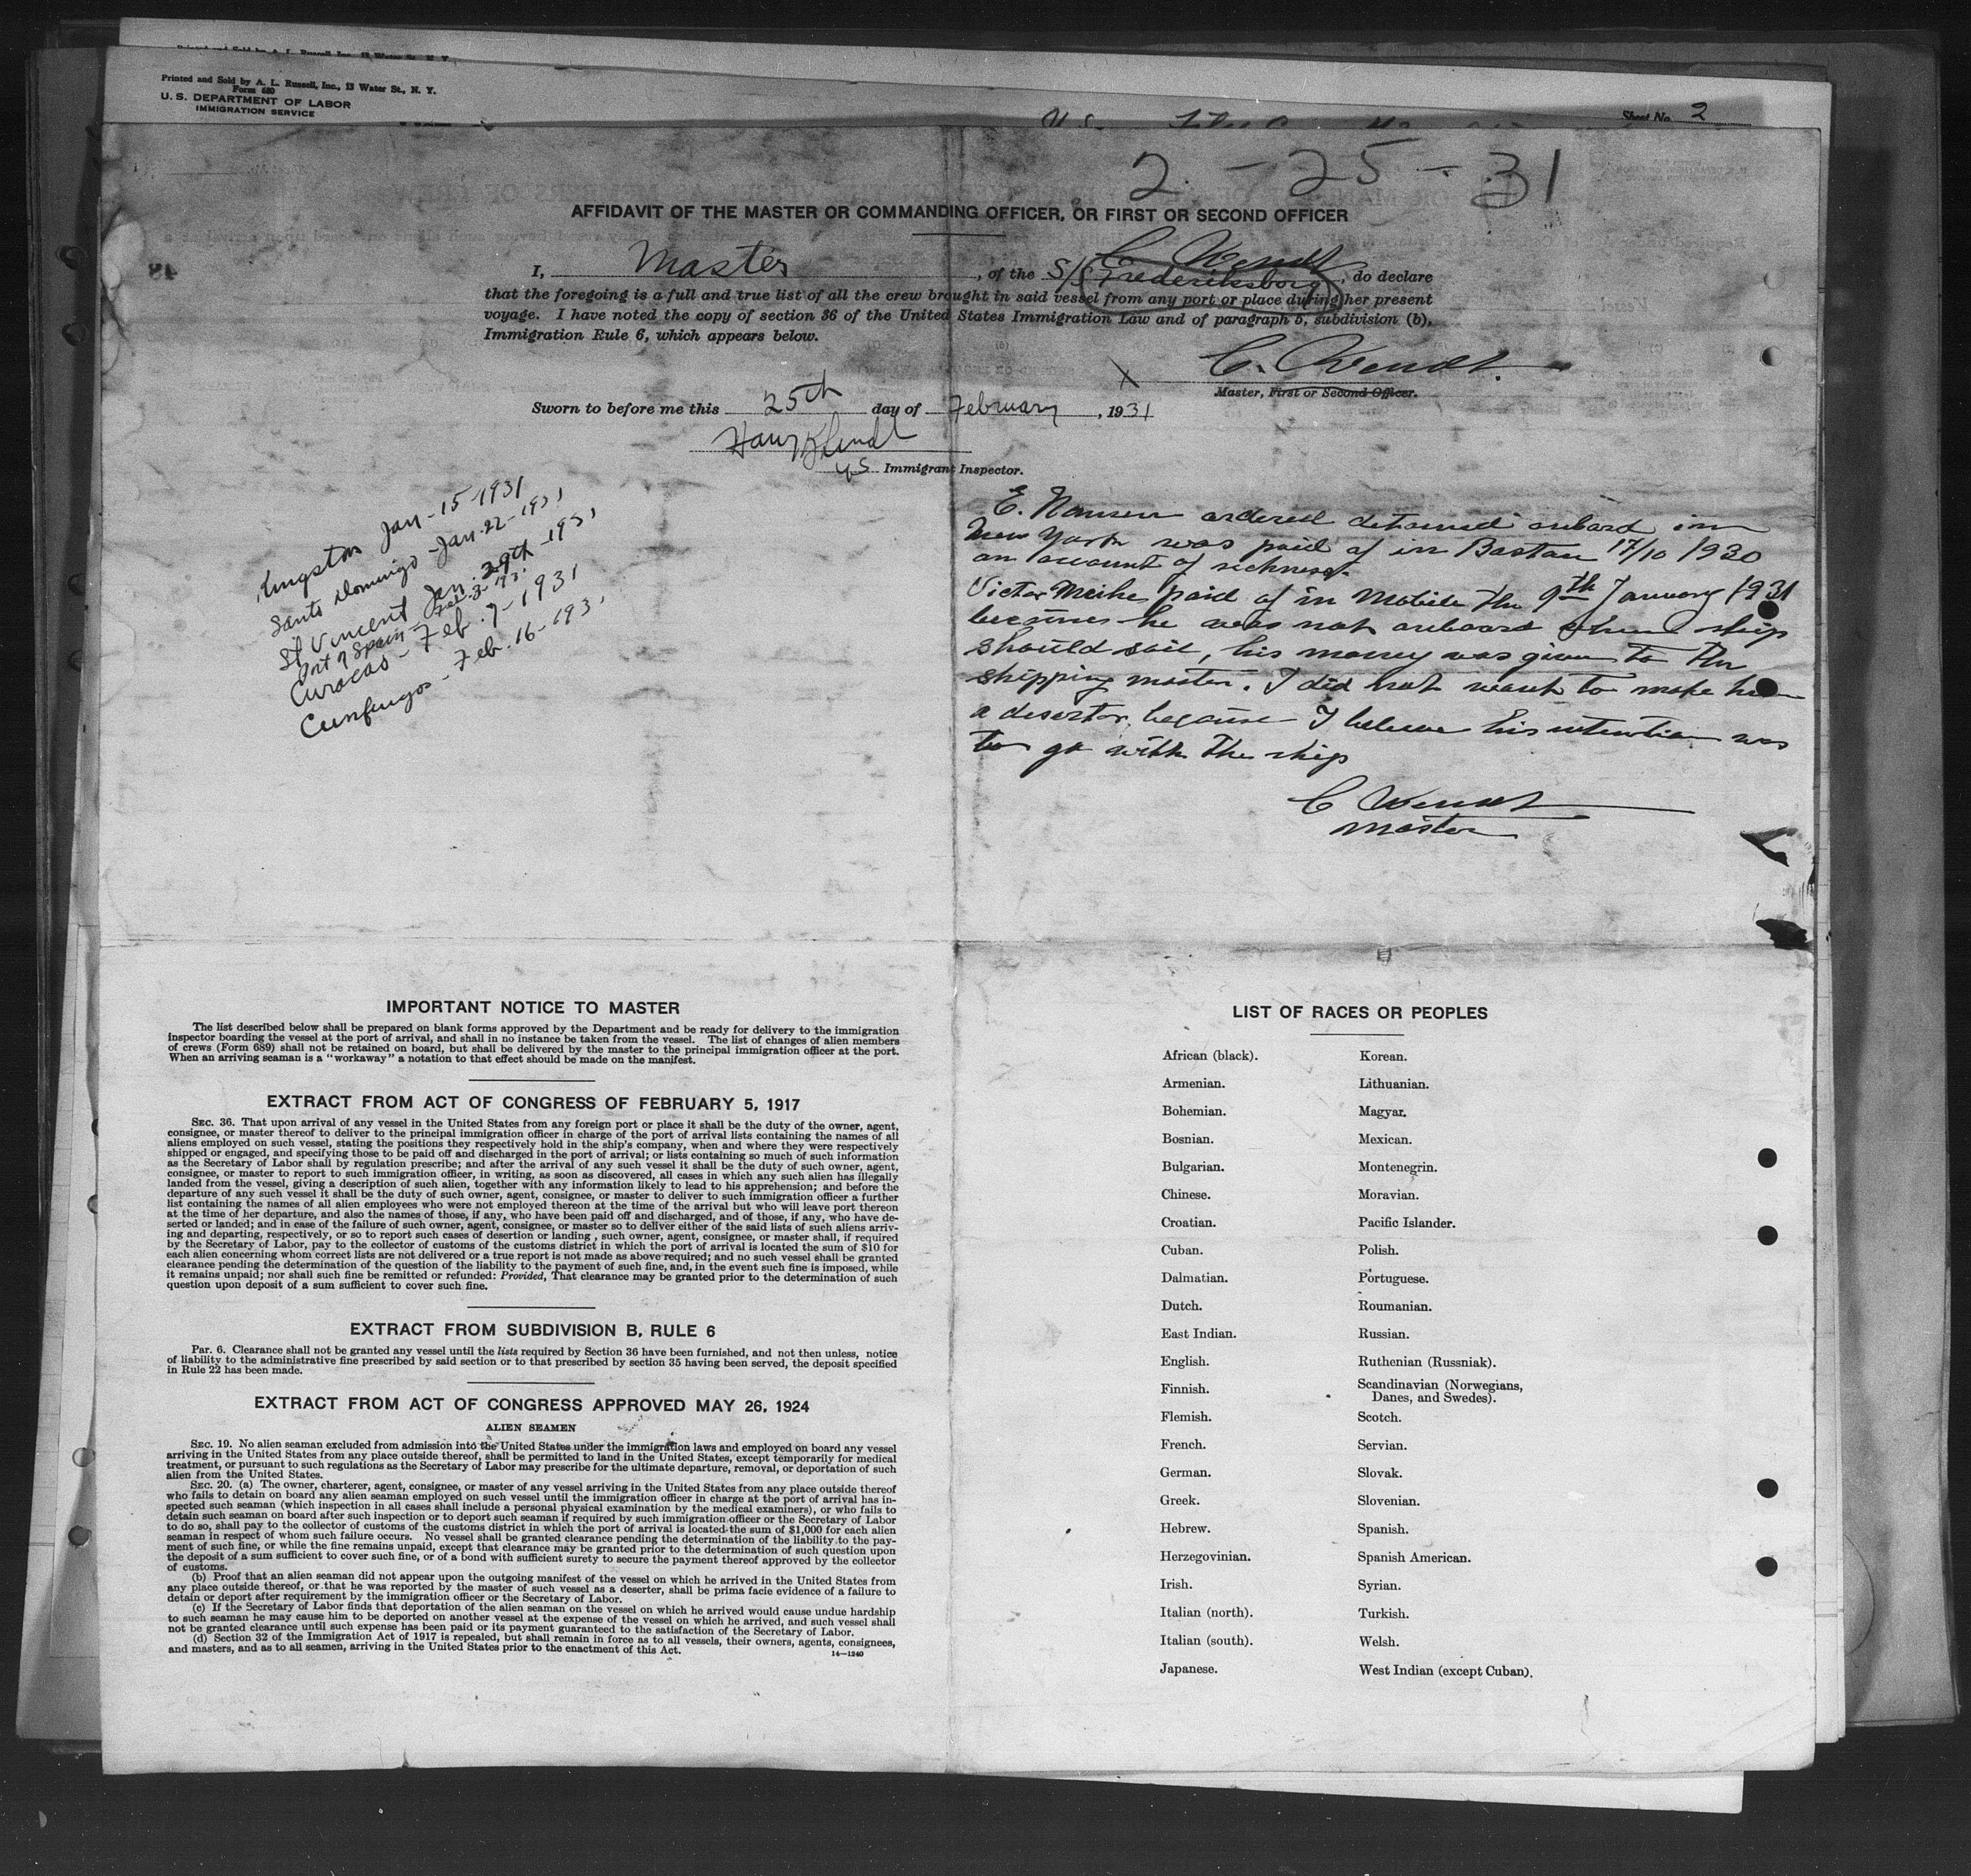 Printed and Sold by A. L. Russell, Inc., 13 Water St., N. Y.
Form 680
U. S. DEPARTMENT OF LABOR
IMMIGRATION SERVICE
Sheet No. 2
2-25-31
AFFIDAVIT OF THE MASTER OR COMMANDING OFFICER, OR FIRST OR SECOND OFFICER
C. Wendt
I, Master, of the S/S Frederiksborg, do declare
that the foregoing is a full and true list of all the crew brought in said vessel from any port or place during her present
voyage. I have noted the copy of section 36 of the United States Immigration Law and of paragraph 5, subdivision (b),
Immigration Rule 6, which appears below.
X C. Wendt.
Master, First or Second Officer.
Sworn to before me this 25th day of February, 1931
US Immigrant Inspector.
Kingston Jan-15-1931
Santo Domingo-Jan.22-1931
St Vincent Jan. 29th-1931
Port of Spain-Feb.3-1931
Curacao-Feb.7-1931
Cienfuegos-Feb.16-1931
E. Hansen ordered detained onboard in
New York was paid of in Bostan 17/10 1930
on account of sickness.
Victor Meike paid of in Mobile the 9th January 1931
because he was not onboard when ship
should sail, his money was given to the
shipping master. I did not want to make him
a desertor, because I believe his intention was
to go with the ship
C Wendt
Master
IMPORTANT NOTICE TO MASTER
The list described below shall be prepared on blank forms approved by the Department and be ready for delivery to the immigration
inspector boarding the vessel at the port of arrival, and shall in no instance be taken from the vessel. The list of changes of alien members
of crews (Form 689) shall not be retained on board, but shall be delivered by the master to the principal immigration officer at the port.
When an arriving seaman is a "workaway" a notation to that effect should be made on the manifest.
EXTRACT FROM ACT OF CONGRESS OF FEBRUARY 5, 1917
SEC. 36. That upon arrival of any vessel in the United States from any foreign port or place it shall be the duty of the owner, agent,
consignee, or master thereof to deliver to the principal immigration officer in charge of the port of arrival lists containing the names of all
aliens employed on such vessel, stating the positions they respectively hold in the ship's company, when and where they were respectively
shipped or engaged, and specifying those to be paid off and discharged in the port of arrival; or lists containing so much of such information
as the Secretary of Labor shall by regulation prescribe; and after the arrival of any such vessel it shall be the duty of such owner, agent,
consignee, or master to report to such immigration officer, in writing, as soon as discovered, all cases in which any such alien has illegally
landed from the vessel, giving a description of such alien, together with any information likely to lead to his apprehension; and before the
departure of any such vessel it shall be the duty of such owner, agent, consignee, or master to deliver to such immigration officer a further
list containing the names of all alien employees who were not employed thereon at the time of the arrival but who will leave port thereon
at the time of her departure, and also the names of those, if any, who have been paid off and discharged, and of those, if any, who have de-
serted or landed; and in case of the failure of such owner, agent, consignee, or master so to deliver either of the said lists of such aliens arriv-
ing and departing, respectively, or so to report such cases of desertion or landing , such owner, agent, consignee, or master shall, if required
by the Secretary of Labor, pay to the collector of customs of the customs district in which the port of arrival is located the sum of $10 for
each alien concerning whom correct lists are not delivered or a true report is not made as above required; and no such vessel shall be granted
clearance pending the determination of the question of the liability to the payment of such fine, and, in the event such fine is imposed, while
it remains unpaid; nor shall such fine be remitted or refunded: Provided, That clearance may be granted prior to the determination of such
question upon deposit of a sum sufficient to cover such fine.
EXTRACT FROM SUBDIVISION B, RULE 6
PAR. 6. Clearance shall not be granted any vessel until the lists required by Section 36 have been furnished, and not then unless, notice
of liability to the administrative fine prescribed by said section or to that prescribed by section 35 having been served, the deposit specified
in Rule 22 has been made.
EXTRACT FROM ACT OF CONGRESS APPROVED MAY 26, 1924
ALIEN SEAMEN
SEC. 19. No alien seaman excluded from admission into the United States under the immigration laws and employed on board any vessel
arriving in the United States from any place outside thereof, shall be permitted to land in the United States, except temporarily for medical
treatment, or pursuant to such regulations as the Secretary of Labor may prescribe for the ultimate departure, removal, or deportation of such
alien from the United States.
SEC. 20. (a) The owner, charterer, agent, consignee, or master of any vessel arriving in the United States from any place outside thereof
who fails to detain on board any alien seaman employed on such vessel until the immigration officer in charge at the port of arrival has in-
spected such seaman (which inspection in all cases shall include a personal physical examination by the medical examiners), or who fails to
detain such seaman on board after such inspection or to deport such seaman if required by such immigration officer or the Secretary of Labor
to do so, shall pay to the collector of customs of the customs district in which the port of arrival is located the sum of $1,000 for each alien
seaman in respect of whom such failure occurs. No vessel shall be granted clearance pending the determination of the liability to the pay-
ment of such fine, or while the fine remains unpaid, except that clearance may be granted prior to the determination of such question upon
the deposit of a sum sufficient to cover such fine, or of a bond with sufficient surety to secure the payment thereof approved by the collector
of customs.
(b) Proof that an alien seaman did not appear upon the outgoing manifest of the vessel on which he arrived in the United States from
any place outside thereof, or that he was reported by the master of such vessel as a deserter, shall be prima facie evidence of a failure to
detain or deport after requirement by the immigration officer or the Secretary of Labor.
(c) If the Secretary of Labor finds that deportation of the alien seaman on the vessel on which he arrived would cause undue hardship
to such seaman he may cause him to be deported on another vessel at the expense of the vessel on which he arrived, and such vessel shall
not be granted clearance until such expense has been paid or its payment guaranteed to the satisfaction of the Secretary of Labor.
(d) Section 32 of the Immigration Act of 1917 is repealed, but shall remain in force as to all vessels, their owners, agents, consignees,
and masters, and as to all seamen, arriving in the United States prior to the enactment of this Act.
14—1240
LIST OF RACES OR PEOPLES
African (black). Korean.
Armenian. Lithuanian.
Bohemian. Magyar.
Bosnian. Mexican.
Bulgarian. Montenegrin.
Chinese. Moravian.
Croatian. Pacific Islander.
Cuban. Polish.
Dalmatian. Portuguese.
Dutch. Roumanian.
East Indian. Russian.
English. Ruthenian (Russniak).
Finnish. Scandinavian (Norwegians,
Danes, and Swedes).
Flemish. Scotch.
French. Servian.
German. Slovak.
Greek. Slovenian.
Hebrew. Spanish.
Herzegovinian. Spanish American.
Irish. Syrian.
Italian (north). Turkish.
Italian (south). Welsh.
Japanese. West Indian (except Cuban).